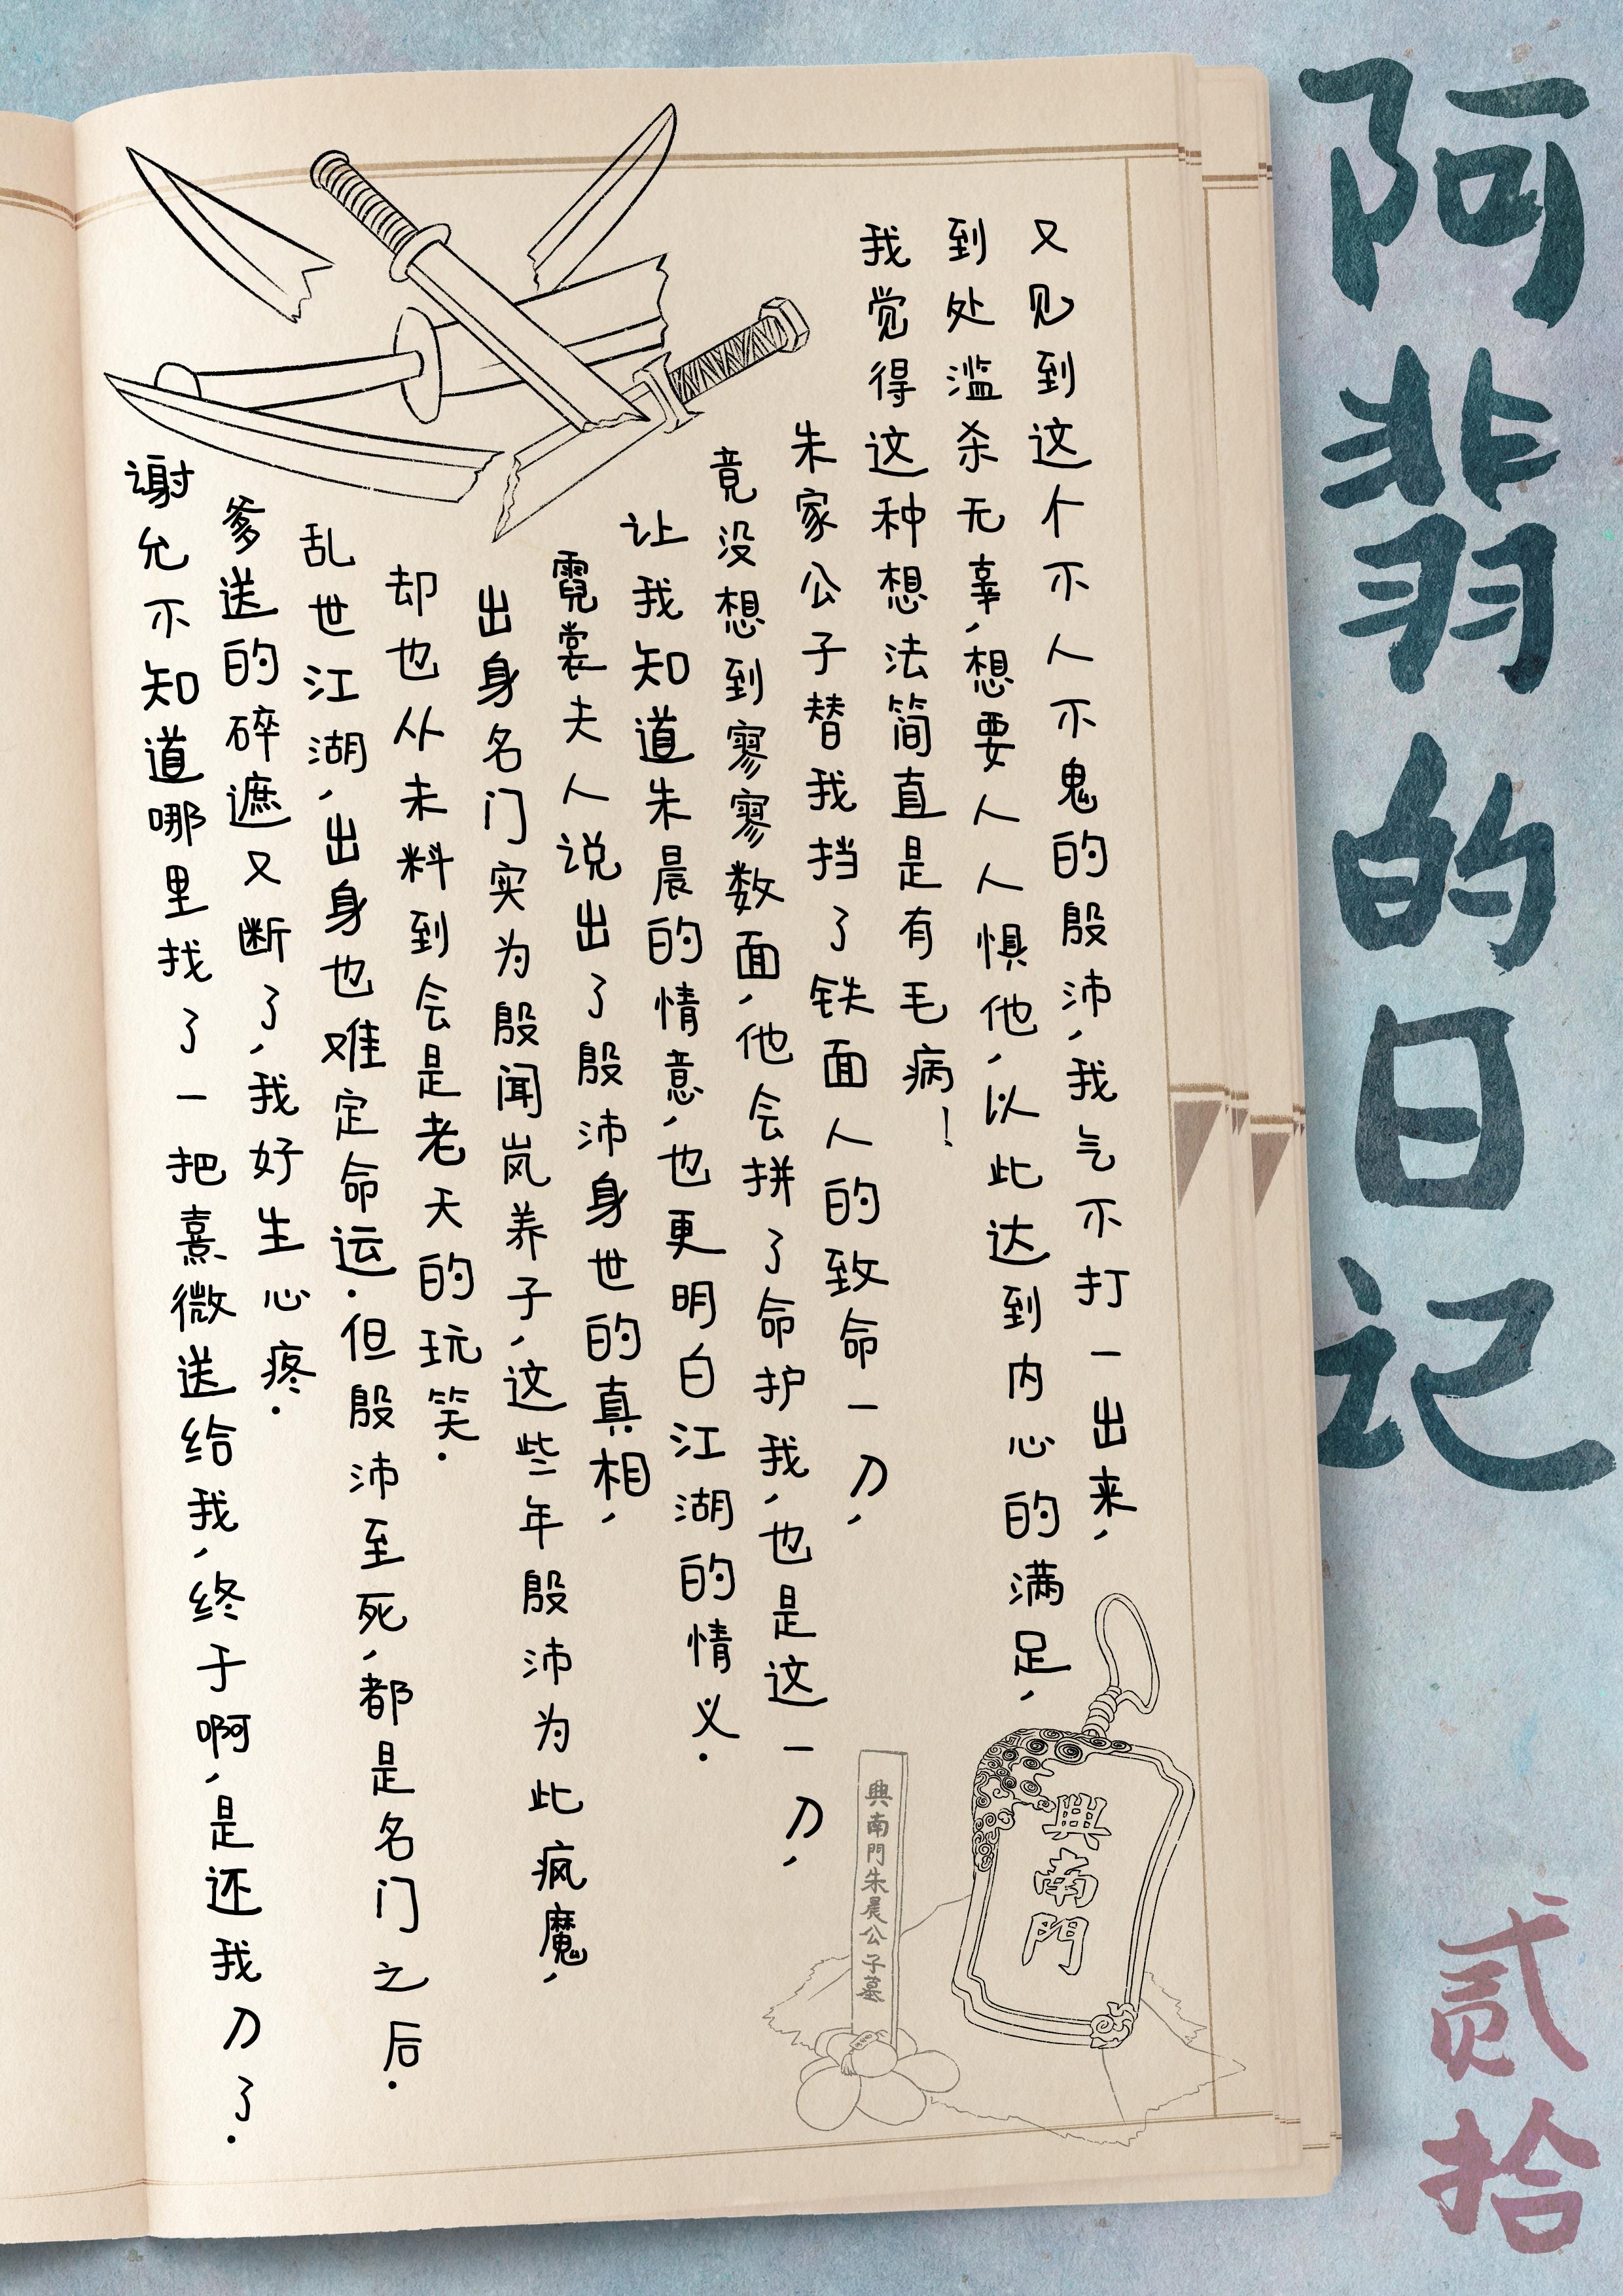 阿翡的日记
贰拾
又见到这个不人不鬼的殷沛，我气不打一出来，
到处滥杀无辜，想要人人惧他，以此达到内心的满足，
我觉得这种想法简直是有毛病！
朱家公子替我挡了铁面人的致命一刀，
竟没想到寥寥数面，他会拼了命护我，也是这一刀，
让我知道朱晨的情意，也更明白江湖的情义.
霓裳夫人说出了殷沛身世的真相，
出身名门实为殷闻岚养子，这些年殷沛为此疯魔，
却也从未料到会是老天的玩笑.
乱世江湖，出身也难定命运.但殷沛至死，都是名门之后.
爹送的碎遮又断了，我好生心疼.
谢允不知道哪里找了一把熹微送给我，终于啊，是还我刀了.
興南門
興南門朱晨公子墓